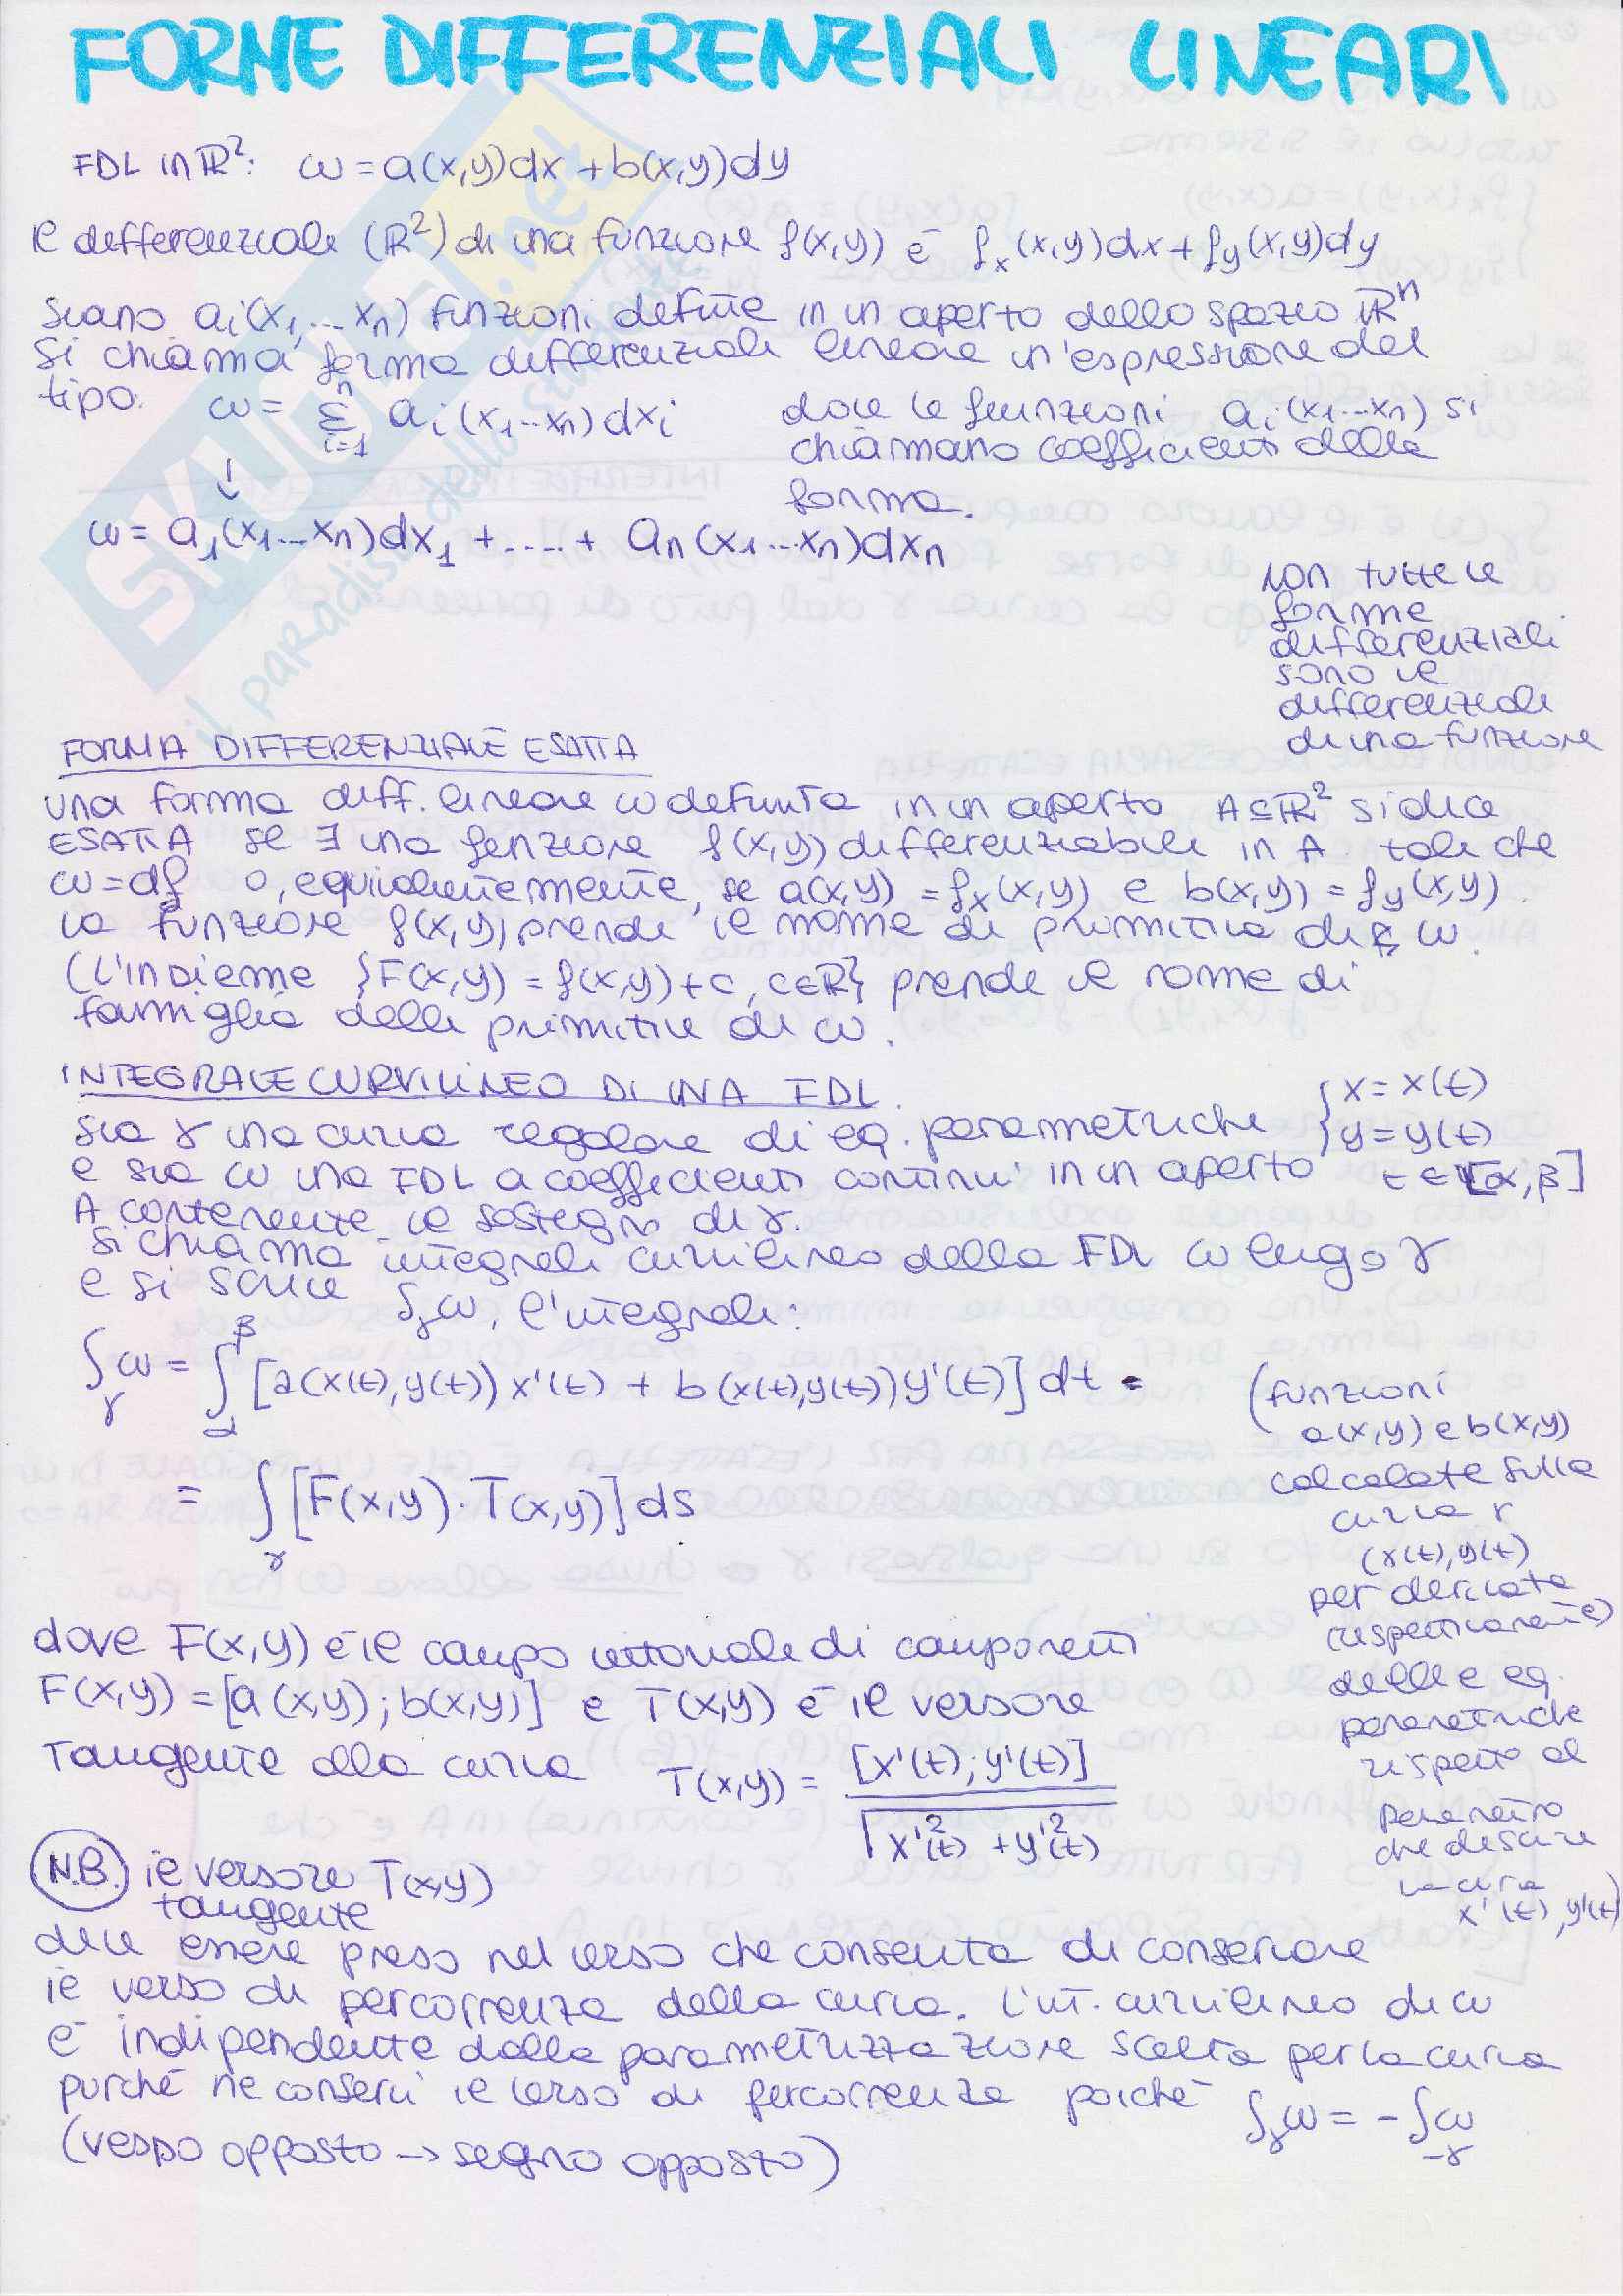 FORME DIFFERENZIALI LINEARI
FDL IN ℝ²: ω = a(x,y)dx + b(x,y)dy
il differenziale (ℝ²) di una funzione f(x,y) è fx(x,y)dx + fy(x,y)dy
siano ai(x1,...xn) funzioni definite in un aperto dello spazio ℝⁿ
si chiama forma differenziale lineare un'espressione del
tipo: ω = Σ_{i=1}^{n} ai(x1...xn)dxi dove le funzioni ai(x1...xn) si
chiamano coefficienti della
forma.
↓
ω = a1(x1...xn)dx1 + .... + an(x1...xn)dxn
NON tutte le
forme
differenziali
sono il
differenziale
di una funzione
FORMA DIFFERENZIALE ESATTA
una forma diff. lineare ω definita in un aperto A⊆ℝ² si dice
ESATTA se ∃ una funzione f(x,y) differenziabile in A tale che
ω=df o, equivalentemente, se a(x,y) = fx(x,y) e b(x,y) = fy(x,y).
la funzione f(x,y) prende il nome di primitiva di ω.
(L'insieme {F(x,y) = f(x,y)+c, c∈ℝ} prende il nome di
famiglia delle primitive di ω.
INTEGRALE CURVILINEO DI UNA FDL.
sia γ una curva regolare di eq. parametriche {x = x(t)
{y = y(t)
t ∈ [α,β]
e sia ω una FDL a coefficienti continui in un aperto
A contenente il sostegno di γ.
si chiama integrale curvilineo della FDL ω lungo γ
e si scrive ∫γ ω, l'integrale:
∫γ ω = ∫_α^β [a(x(t),y(t)) x'(t) + b(x(t),y(t)) y'(t)] dt =
= ∫γ [F(x,y)·T(x,y)] ds
(funzioni
a(x,y) e b(x,y)
calcolate sulla
curva γ
(x(t),y(t)
per derivate
(rispettivamente)
delle eq.
parametriche
rispetto al
parametro
che descrive
la curva
x'(t), y'(t)
dove F(x,y) è il campo vettoriale di componenti
F(x,y) = [a(x,y); b(x,y)] e T(x,y) è il versore
tangente alla curva T(x,y) = [x'(t); y'(t)] / √x'²(t) + y'²(t)
N.B. il versore T(x,y)
tangente
deve essere preso nel verso che consenta di conservare
il verso di percorrenza della curva. L'int. curvilineo di ω
è indipendente dalla parametrizzazione scelta per la curva
purché ne conservi il verso di percorrenza poiché ∫γ ω = -∫-γ ω
(verso opposto → segno opposto)
SKUOLA.net
il paradiso dello studente